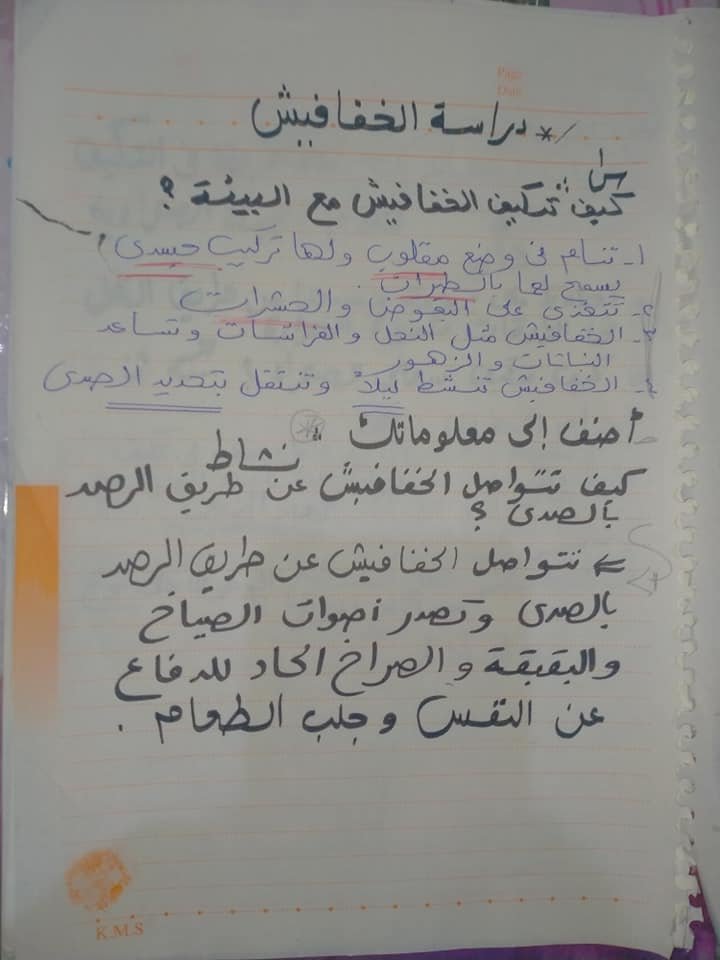 Page
Date
*/ دراسة الخفافيش
س١
كيف تتكيف الخفافيش مع البيئة ؟
١- تنام فى وضع مقلوب ولها تركيب جسدى
يسمح لها بالطيران .
٢- تتغذى على البعوض والحشرات
٣- الخفافيش مثل النحل والفراشات وتساعد
النباتات والزهور
٤- الخفافيش تنشط ليلاً وتنتقل بتحديد الصدى
أضف إلى معلوماتك
نشاط
كيف تتواصل الخفافيش عن طريق الرصد
بالصدى ؟
تتواصل الخفافيش عن طريق الرصد
بالصدى وتصدر أصوات الصياح
والبقبقة والصراخ الحاد للدفاع
عن النفس وجلب الطعام .
K.M.S